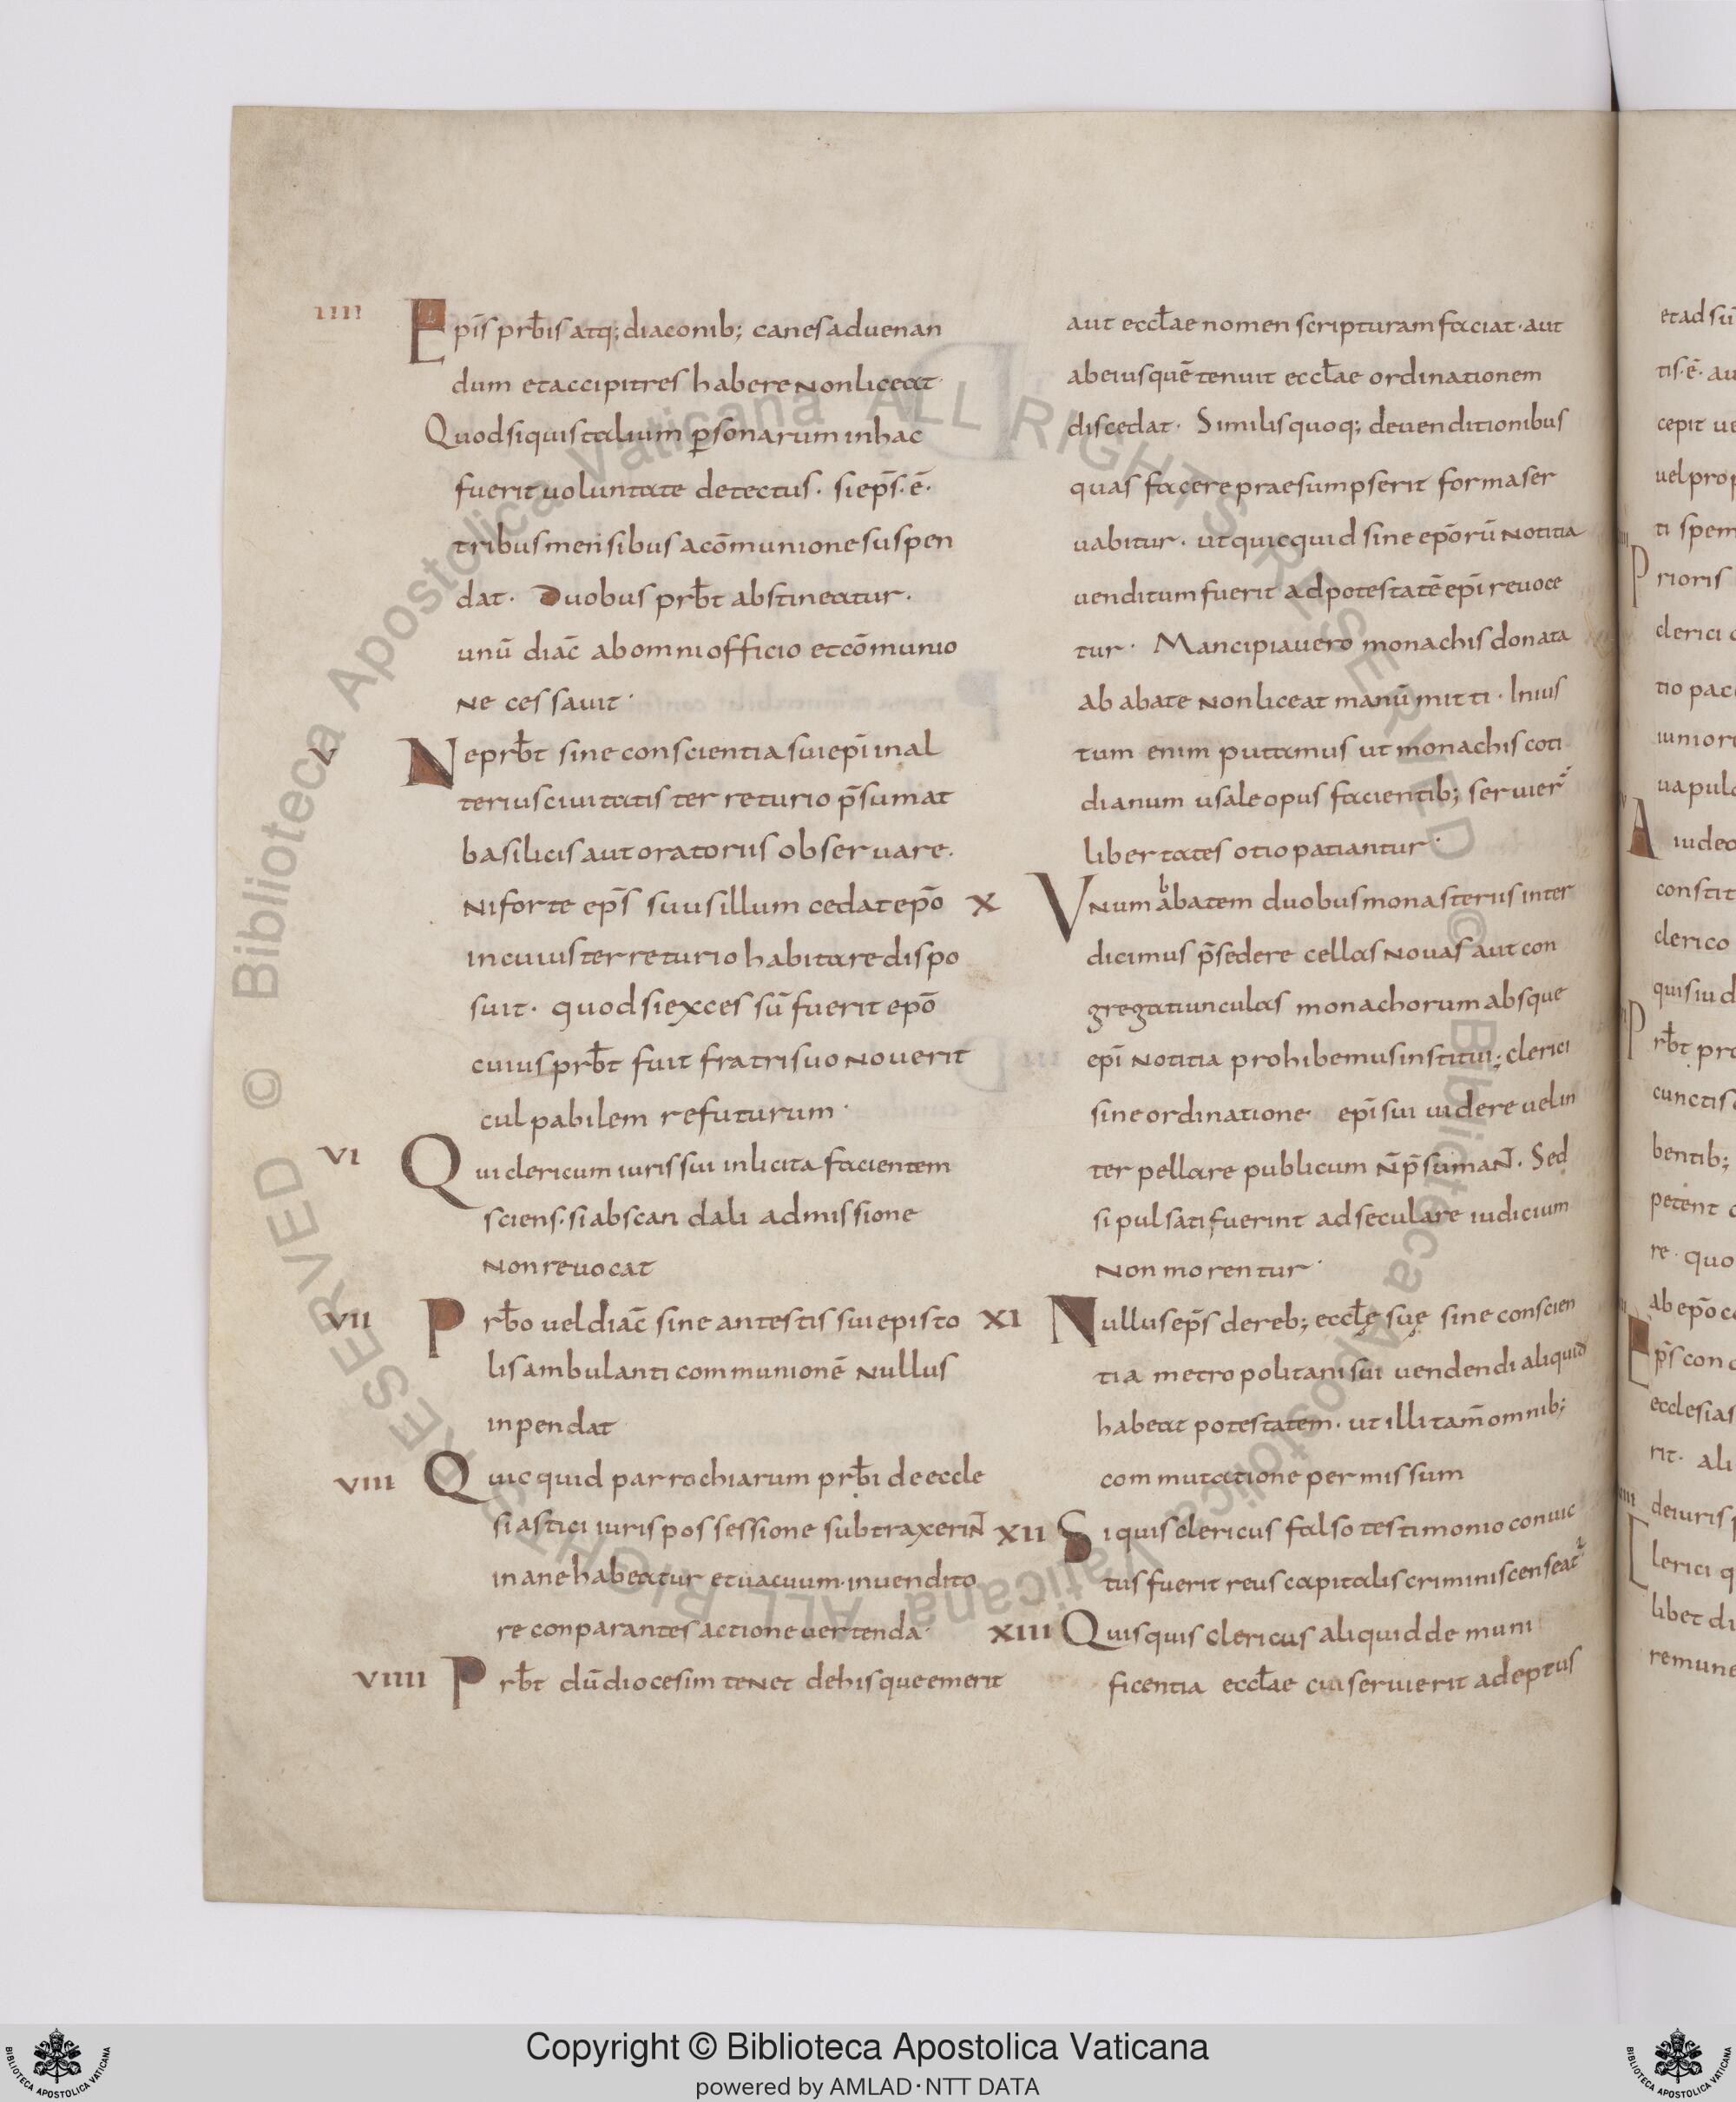 IIII Epīs prƀis atq; diaconib; canes aduenan
dum et accipitres habere non liceat·
Quod si quis talium ꝑsonarum in hac
fuerit uoluntate detectus· si ep̄s· ē·
tribus mensibus a cōmunione suspen
dat· Duobus prƀt abstineatur·
unū diac̄ ab omni officio et cōmunio
ne cessauit·
V Ne prƀt sine conscientia sui epī in al
terius ciuitatis terreturio p̄sumat
basilicis aut oratoriis obseruare·
Ni forte ep̄s suus illum cedat epō
in cuius terreturio habitare dispo
suit· quod si excessū fuerit epō
cuius prƀt fuit fratri suo nouerit
culpabilem refuturum·
VI Qui clericum iuris sui inlicita facientem
sciens· si ab scandali admissione
non reuocat
VII Prƀo uel diac̄ sine antestis sui episto
lis ambulanti communionē nullus
inpendat
VIII Quicquid parrochiarum prƀi de eccle
siastici iuris possessione subtraxerin̄
inane habeatur et uacuum· in uendito
re conparantes actione uertenda·
VIIII Prƀt dū diocesim tenet de his que emerit
aut eccƚae nomen scripturam faciat· aut
ab eius quē tenuit eccƚae ordinationem
discedat· Similis quoq; de uenditionibus
quas facere praesumpserit forma ser
uabitur· ut quicquid sine epōrū notitia
uenditum fuerit ad potestatē epī reuoce
tur· Mancipia uero monachis donata
ab abate non liceat manū mitti· Inius
tum enim putamus ut monachis coti
dianum usale opus facientib; seruier̄
libertates otio patiantur·
X Vnum abbatem duobus monasteriis inter
dicimus p̄sedere cellas nouas aut con
gregatiunculas monachorum absque
epī notitia prohibemus institui; clerici
sine ordinatione epī sui uidere uel in
terpellare publicum n̄ p̄suman̄· Sed
si pulsati fuerint ad seculare iudicium
non morentur·
XI Nullus ep̄s de reb; eccƚę suę sine conscien
tia metropolitani sui uendendi aliquid
habeat potestatem· ut illi tam̄ omnib;
commutatione permissum
XII Si quis clericus falso testimonio conuic
tus fuerit reus capitalis criminis censeat᷑
XIII Quisquis clericus aliquid de muni
ficentia eccƚae cui seruierit adeptus
et ad sū
tis· ē· au
cepit ue
uel prop
ti spem
Prioris
clerici
tio pac
iuniori
uapula
A iudeo
constit
clerico
quis iud
Prƀt pro
cunctis
bentib;
petent
re· quo
ab epō
Ep̄s con
ecclesias
rit· ali
de iuris
Clerici q
libet di
remune
© Biblioteca Apostolica Vaticana ALL RIGHTS RESERVED © Biblioteca Apostolica Vaticana ALL RIGHTS RESERVED
Copyright © Biblioteca Apostolica Vaticana
powered by AMLAD·NTT DATA
BIBLIOTECA APOSTOLICA VATICANA
BIBLIOTECA APOSTOLICA VATICANA